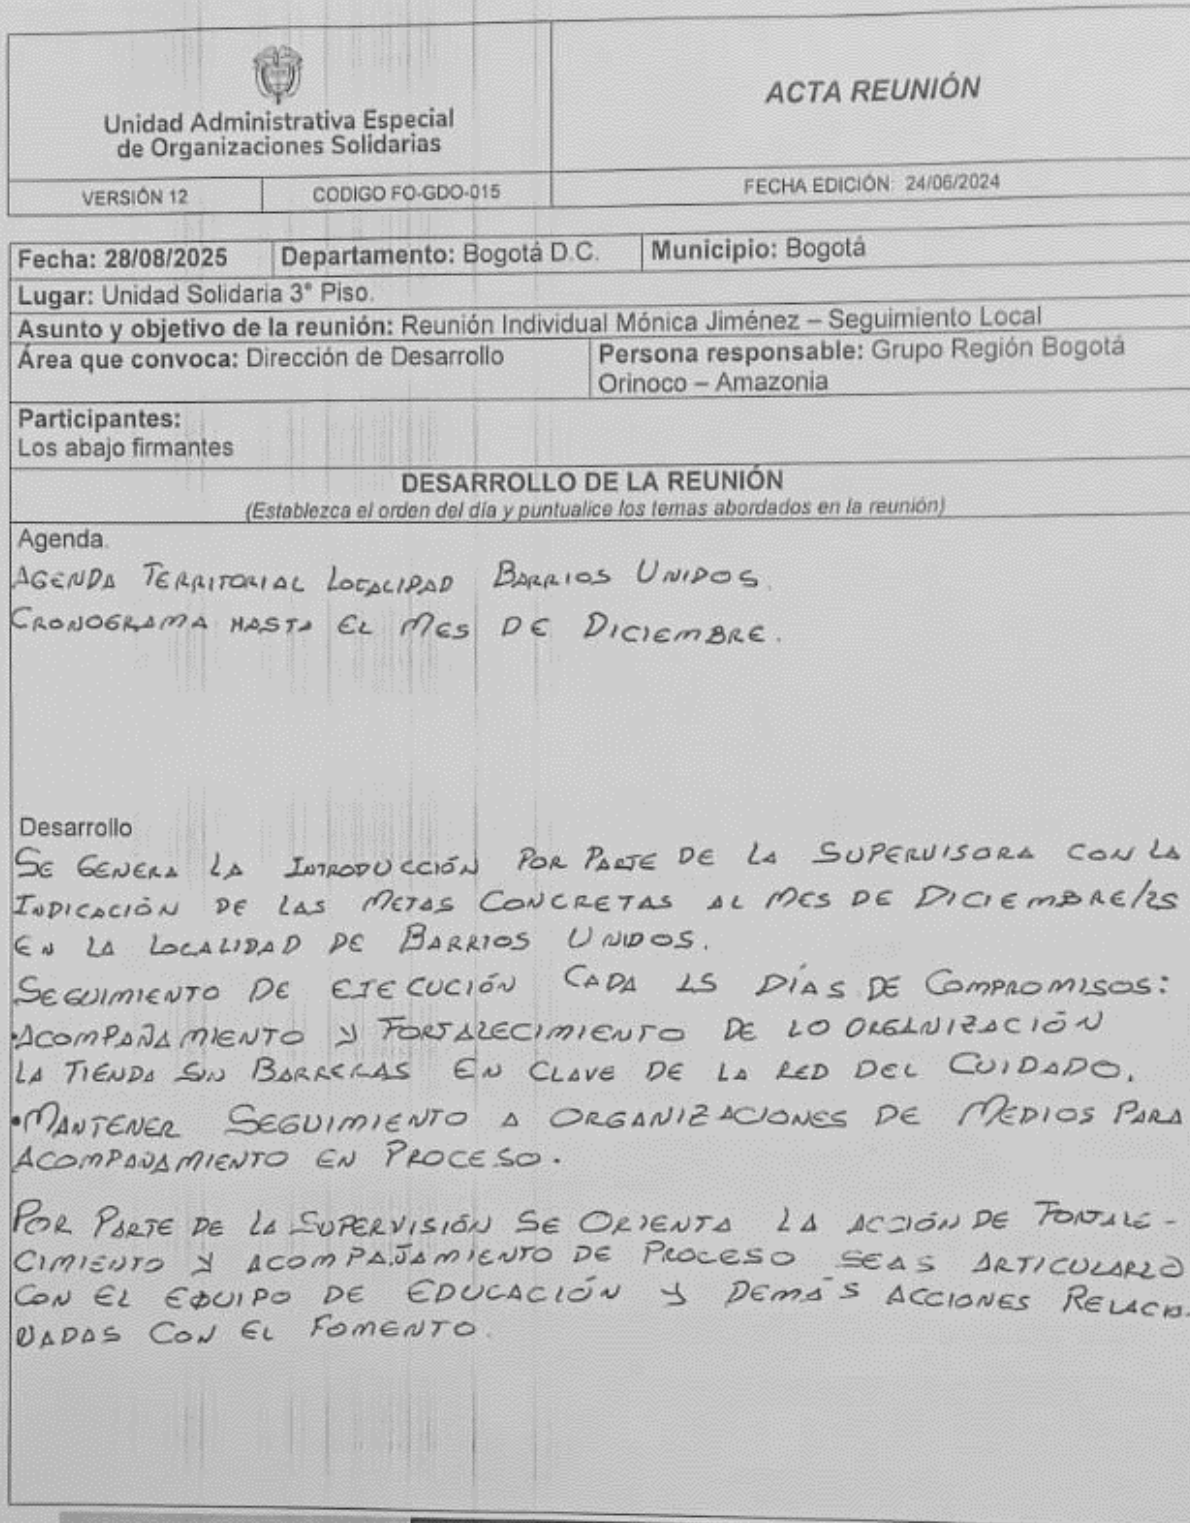 Unidad Administrativa Especial
de Organizaciones Solidarias
ACTA REUNIÓN
VERSIÓN 12
CODIGO FO-GDO-015
FECHA EDICIÓN: 24/06/2024
Fecha: 28/08/2025 Departamento: Bogotá D.C. Municipio: Bogotá
Lugar: Unidad Solidaria 3° Piso.
Asunto y objetivo de la reunión: Reunión Individual Mónica Jiménez – Seguimiento Local
Área que convoca: Dirección de Desarrollo
Persona responsable: Grupo Región Bogotá
Orinoco – Amazonia
Participantes:
Los abajo firmantes
DESARROLLO DE LA REUNIÓN
(Establezca el orden del día y puntualice los temas abordados en la reunión)
Agenda.
AGENDA TERRITORIAL LOCALIDAD BARRIOS UNIDOS.
CRONOGRAMA HASTA EL MES DE DICIEMBRE.
Desarrollo
SE GENERA LA INTRODUCCIÓN POR PARTE DE LA SUPERVISORA CON LA
INDICACIÓN DE LAS METAS CONCRETAS AL MES DE DICIEMBRE/25
EN LA LOCALIDAD DE BARRIOS UNIDOS.
SEGUIMIENTO DE EJECUCIÓN CADA 15 DÍAS DE COMPROMISOS:
•ACOMPAÑAMIENTO Y FORTALECIMIENTO DE LO ORGANIZACIÓN
LA TIENDA SIN BARRERAS EN CLAVE DE LA RED DEL CUIDADO.
•MANTENER SEGUIMIENTO A ORGANIZACIONES DE MEDIOS PARA
ACOMPAÑAMIENTO EN PROCESO.
POR PARTE DE LA SUPERVISIÓN SE ORIENTA LA ACCIÓN DE FORTALE-
CIMIENTO Y ACOMPAÑAMIENTO DE PROCESO SEAS ARTICULARLO
CON EL EQUIPO DE EDUCACIÓN Y DEMÁS ACCIONES RELACIO-
NADAS CON EL FOMENTO.